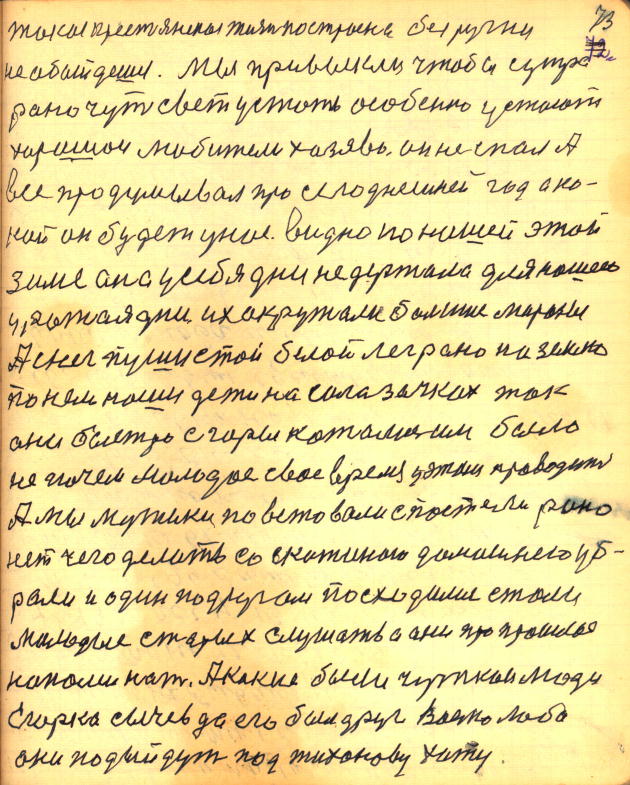 73
такая крестьянская жизнь построена без ругни
не обойдеш. Мы привыкли чтобы с утра
рано чут свет устать особенно устають
хорошои любители хазяева. он не спал А
все продумывал про сегоднешней год ако-
кой он будет у нас. видно по нашей этой
зиме она у себя дни не держала для нашего
урожая дни. их окружали большие марозы
А снег пушистой белой лег рано на землю
по нем наши дети на салазачках так
они быстро с горы катались им было
не почем молодое свое время узятой проводить
А мы мужики повставали с постели рано
нет чего делать со скотиною домашнего уб-
рали и один под другом посходили стали
молодые старых слушать а они про прошлое
напоминат. А какие были чуткои люди
Егорка сычев да его был друг Васько лоба
они подыйдут под тихонову хату.